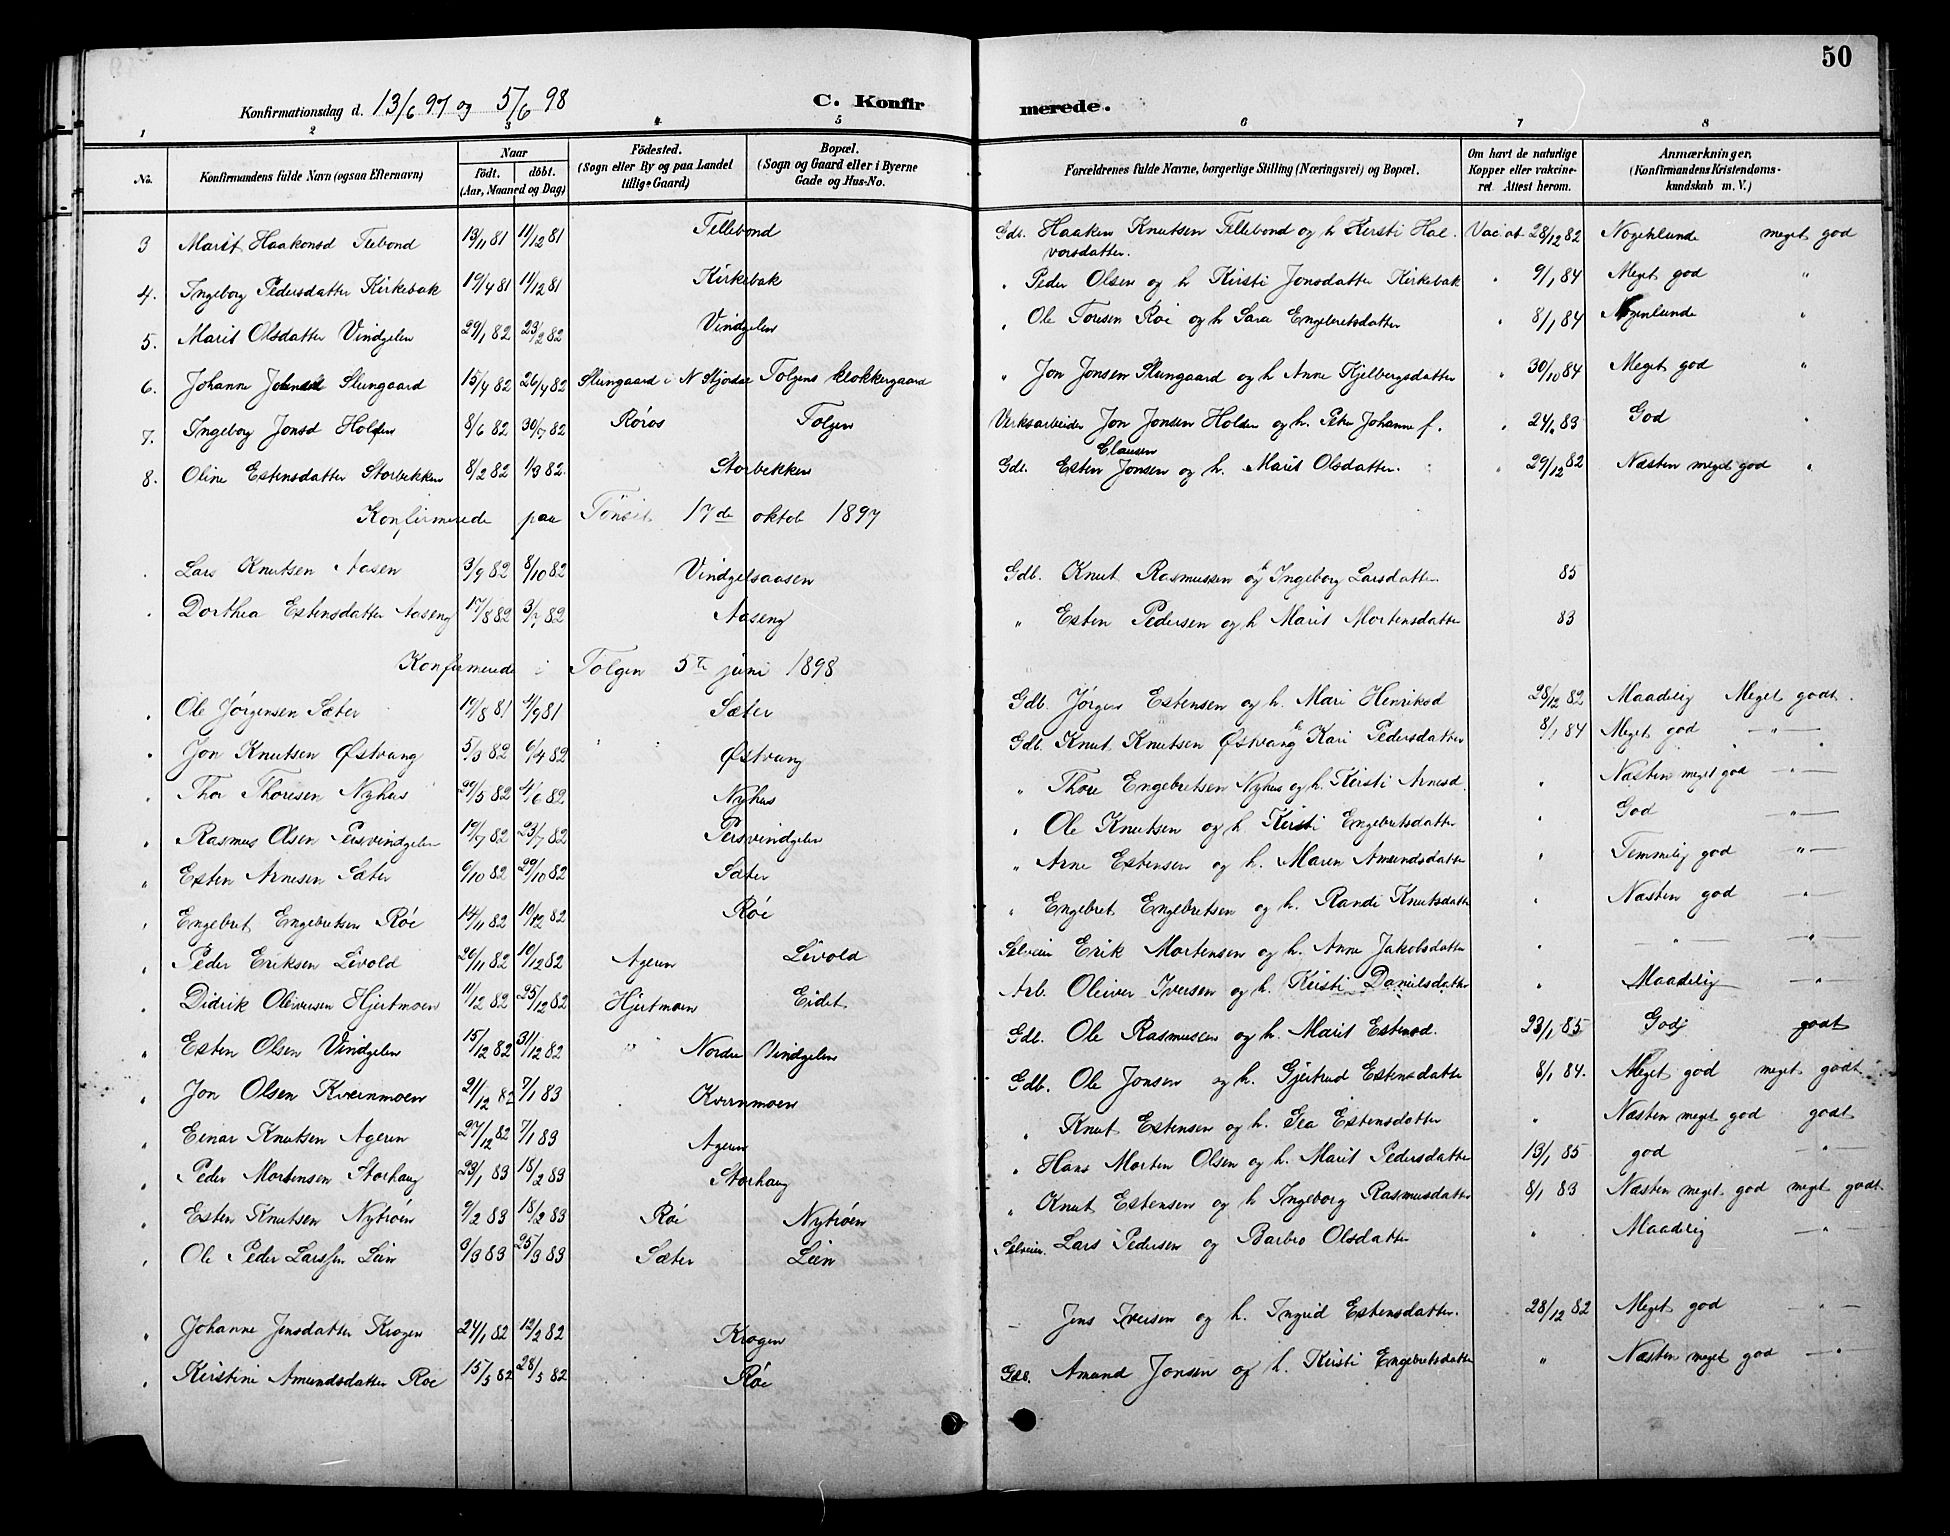 50
Konfirmationsdag d. 13/6 97 og 5/6 98 C. Konfir merede.
1 2 3 4 5 6 7 8
No. Konfirmandens fulde Navn (ogsaa Efternavn) Naar födt. döbt. (Aar, Maaned og Dag) Födested. (Sogn eller By og paa Landet tillige Gaard) Bopæl. (Sogn og Gaard eller i Byerne Gade og Hus-No. Forældrenes fulde Navne, borgerlige Stilling (Næringsvei) og Bopæl. Om havt de naturlige Kopper eller vakcineret. Attest herom. Anmærkninger. (Konfirmandens Kristendomskundskab m. V.)
3 Marit Haakonsd 13/11 81 11/12 81 Tellebond Gdb. Haaken Knutsen Tellebond og h Kersti Halvorsdatter. Vac at 28/12 82 Nogenlunde meget god
4. Ingeborg Pedersdatter Kirkebak 19/4 81 11/12 81 Kirkebak " Peder Olsen og h Kirsti Jonsdatter Kirkebak " 9/1 84 Meget god "
5. Marit Olsdatter Vindgelen 29/1 82 23/2 82 Vindgelen " Ole Toresen Röi og h Sara Engebretsdatter " 8/1 84 Nogenlunde "
6. Johanne Slungaard 15/4 82 26/4 82 Slungaard i N Stjørdal Tolgens klokkergaard " Jon Jonsen Slungaard og h Anne Kjelbergsdatter " 30/10 84 Meget god "
7. Ingeborg Jonsd Holden 8/6 82 30/7 82 Röros Tolgen Verksarbeider Jon Jonsen Holden og h. Johanne f. Clausen " 83 God "
8. Oline Estensdatter Storbekken 8/2 82 1/3 82. Storbekken Gdb. Esten Jonsen og h. Marit Olsdatter. " 29/12 82 Næsten meget god "
Konfirmerede paa Tönset 17de oktob 1897
Lars Knutsen Aasen 3/9 82 8/10 82 Vindgelsaasen Gdb. Knut Rasmussen og h Ingeborg Larsdatter 85
Dorthea Estensdatter Aaseng 17/8 82 82 Aaseng " Esten Pedersen og h Marit Mortensdatter 83
Konfirmerede i Tolgen 5te juni 1898
" Ole Jørgensen Sæter 19/8 81 4/9 81 Sæter Gdb. Jørgen Estensen og h. Mari Henriksd 28/12 82 Maadelig Meget godt.
" Jon Knutsen Østvang 5/3 82 6/4 82 Østvang Gdb. Knut Knutsen Østvang h Kari Pedersdatter 8/1 84 Meget god — " —
" Thor Thoresen Nyhus 29/5 82 4/6 82 Nyhus " Thore Engebretsen Nyhus og h. Kersti Arnesd. " Næsten meget god — " —
" Rasmus Olsen Persvindgelen 19/7 82 23/7 82 Persvindgelen " Ole Knutsen og h. Kirsti Engebretsdatter " God — " —
" Esten Arnesen Sæter 6/10 82 29/10 82 Sæter " Arne Estensen og h. Maren Amundsdatter " Temmelig god — " —
" Engebret Engebretsen Röe 14/11 82 10/12 82 Röe " Engebret Engebretsen og h. Randi Knutsdatter " Næsten god — " —
" Peder Eriksen Livold 26/11 82 10/12 82 Ageren Livold Selveier Erik Mortensen og h. Anne Jakobsdatter " — " — — " —
" Didrik Oliversen Hjertmoen 11/12 82 25/12 82 Hjertmoen Eidet Arb. Oliver Iversen og h. Kristi Danielsdatter " Maadelig — " —
" Esten Olsen Vindgelen 15/12 82 31/12 82 " Nordre Vindgelen Gdb. Ole Rasmussen og h. Marit Estensd. 23/1 85 God godt
" Jon Olsen Kvernmoen 21/12 82 7/1 83 Kvernmoen Gdb. Ole Jonsen og h. Gjertrud Estensdatter 8/1 84. Meget god meget godt
" Einar Knutsen Ageren 27/12 82 7/1 83 Ageren " Knut Estensen og h. Gea Estensdatter " Næsten meget god godt
" Peder Mortensen Storhaug 23/1 83 18/2 83 Storhaug " Hans Morten Olsen og h. Marit Pedersdatter 13/1 85 god — " —
" Esten Knutsen Nytröen 9/2 83 18/2 83 Röi Nytröen " Knut Estensen og h Ingeborg Rasmusdatter 8/1 83 Næsten meget god meget godt
" Ole Peder Larssen Lien 9/3 83 25/3 83 Sæter Lien Selveier. Lars Pedersen og Barbro Olsdatter " Maadelig — " —
" Johanne Jensdatter Krogen 24/1 82 12/2 82 Krogen — Jens Iversen og h. Ingrid Estensdatter. 28/12 82 Meget god " —
" Kirstine Amundsdatter Roe 15/5 82 28/5 82 Röe Gdb. Amund Jonsen og h. Kirsti Engebretsdatter " Næsten meget god — " —